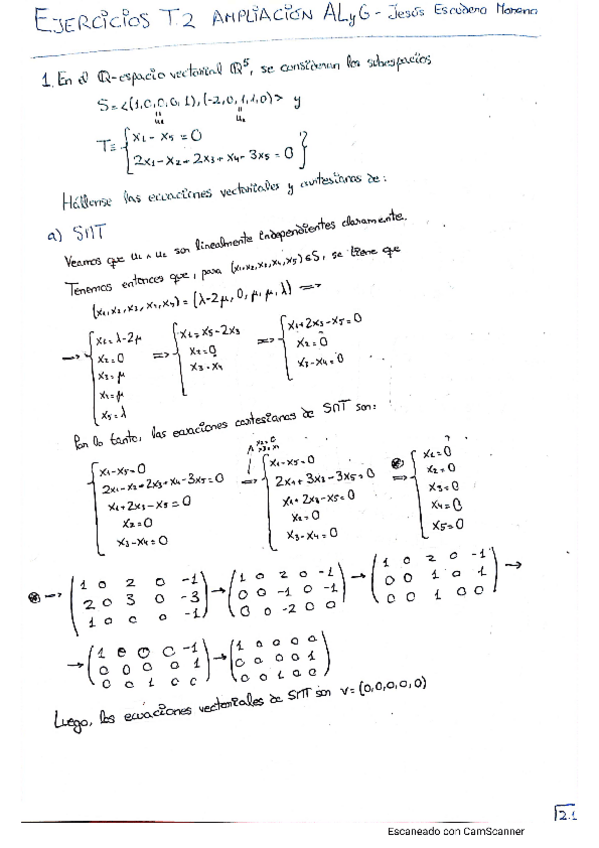 EJERCICIOS T.2 AMPLIACIÓN ALyG - Jesús Escudero Moreno
1. En el Q-espacio vectorial Q⁵, se consideran los subespacios
S = <(1,0,0,0,1), (-2,0,1,1,0)> y
u₁ u₂
T ≡ { x₁ - x₅ = 0
2x₁ - x₂ - 2x₃ + x₄ - 3x₅ = 0 }
Hállense las ecuaciones vectoriales y cartesianas de:
a) S∩T
Veamos que u₁ ∧ u₂ son linealmente independientes claramente.
Tenemos entonces que, para (x₁,x₂,x₃,x₄,x₅) ∈ S, se tiene que
(x₁,x₂,x₃,x₄,x₅) = (λ-2μ, 0, μ, μ, λ) =>
=> { x₁ = λ-2μ => { x₁ = x₅ - 2x₃ => { x₁ + 2x₃ - x₅ = 0
x₂ = 0 x₂ = 0 x₂ = 0
x₃ = μ x₃ = x₄ x₃ - x₄ = 0
x₄ = μ
x₅ = λ
Por lo tanto, las ecuaciones cartesianas de S∩T son:
{ x₁ - x₅ = 0 => { x₁ - x₅ = 0 => { x₁ = 0
2x₁ - x₂ - 2x₃ + x₄ - 3x₅ = 0 2x₁ + 3x₃ - 3x₅ = 0 x₂ = 0
x₁ + 2x₃ - x₅ = 0 x₁ + 2x₃ - x₅ = 0 x₃ = 0
x₂ = 0 x₂ = 0 x₄ = 0
x₃ - x₄ = 0 x₃ - x₄ = 0 x₅ = 0
=> (1 0 2 0 -1) -> (1 0 2 0 -1) -> (1 0 2 0 -1) ->
(2 0 3 0 -3) (0 0 -1 0 -1) (0 0 1 0 1)
(1 0 0 0 -1) (0 0 -2 0 0) (0 0 1 0 0)
-> (1 0 0 0 -1) -> (1 0 0 0 0)
(0 0 0 0 1) (0 0 0 0 1)
(0 0 1 0 0) (0 0 1 0 0)
Luego, las ecuaciones vectoriales de S∩T son v = (0,0,0,0,0)
2.1
Escaneado con CamScanner